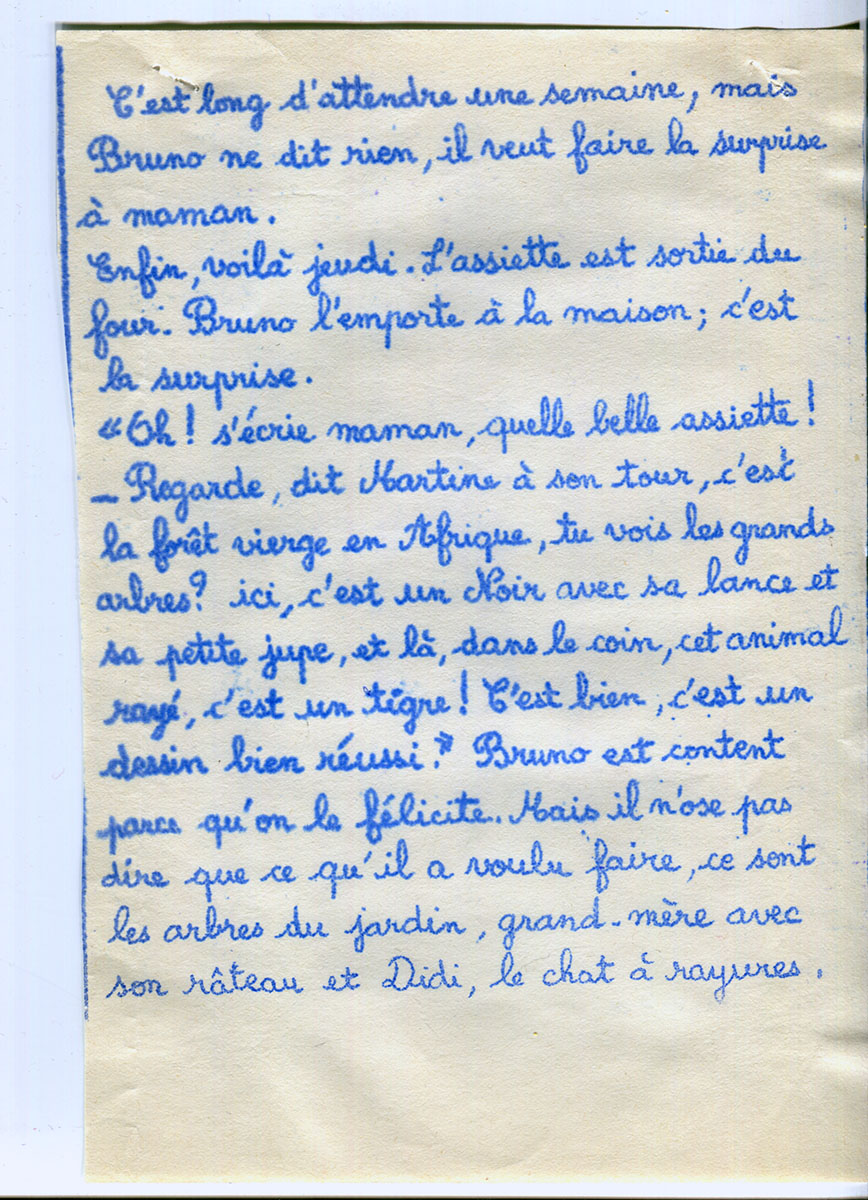 C'est long d'attendre une semaine, mais
Bruno ne dit rien, il veut faire la surprise
à maman.
Enfin, voilà jeudi. L'assiette est sortie du
four. Bruno l'emporte à la maison; c'est
la surprise.
« Oh ! s'écrie maman, quelle belle assiette !
_ Regarde, dit Martine à son tour, c'est
la forêt vierge en Afrique, tu vois les grands
arbres? ici, c'est un Noir avec sa lance et
sa petite jupe, et là, dans le coin, cet animal
rayé, c'est un tigre ! C'est bien, c'est un
dessin bien réussi. » Bruno est content
parce qu'on le félicite. Mais il n'ose pas
dire que ce qu'il a voulu faire, ce sont
les arbres du jardin, grand-mère avec
son râteau et Didi, le chat à rayures.